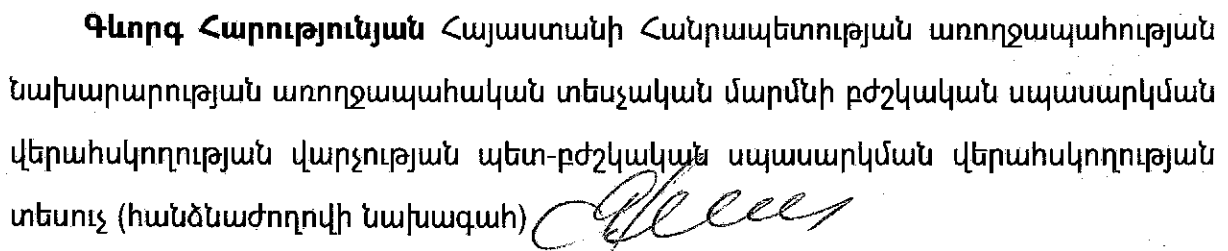 Գևորգ Հարությունյան Հայաստանի Հանրապետության առողջապահության
նախարարության առողջապահական տեսչական մարմնի բժշկական սպասարկման
վերահսկողության վարչության պետ-բժշկական սպասարկման վերահսկողության
տեսուչ (հանձնաժողովի նախագահ)